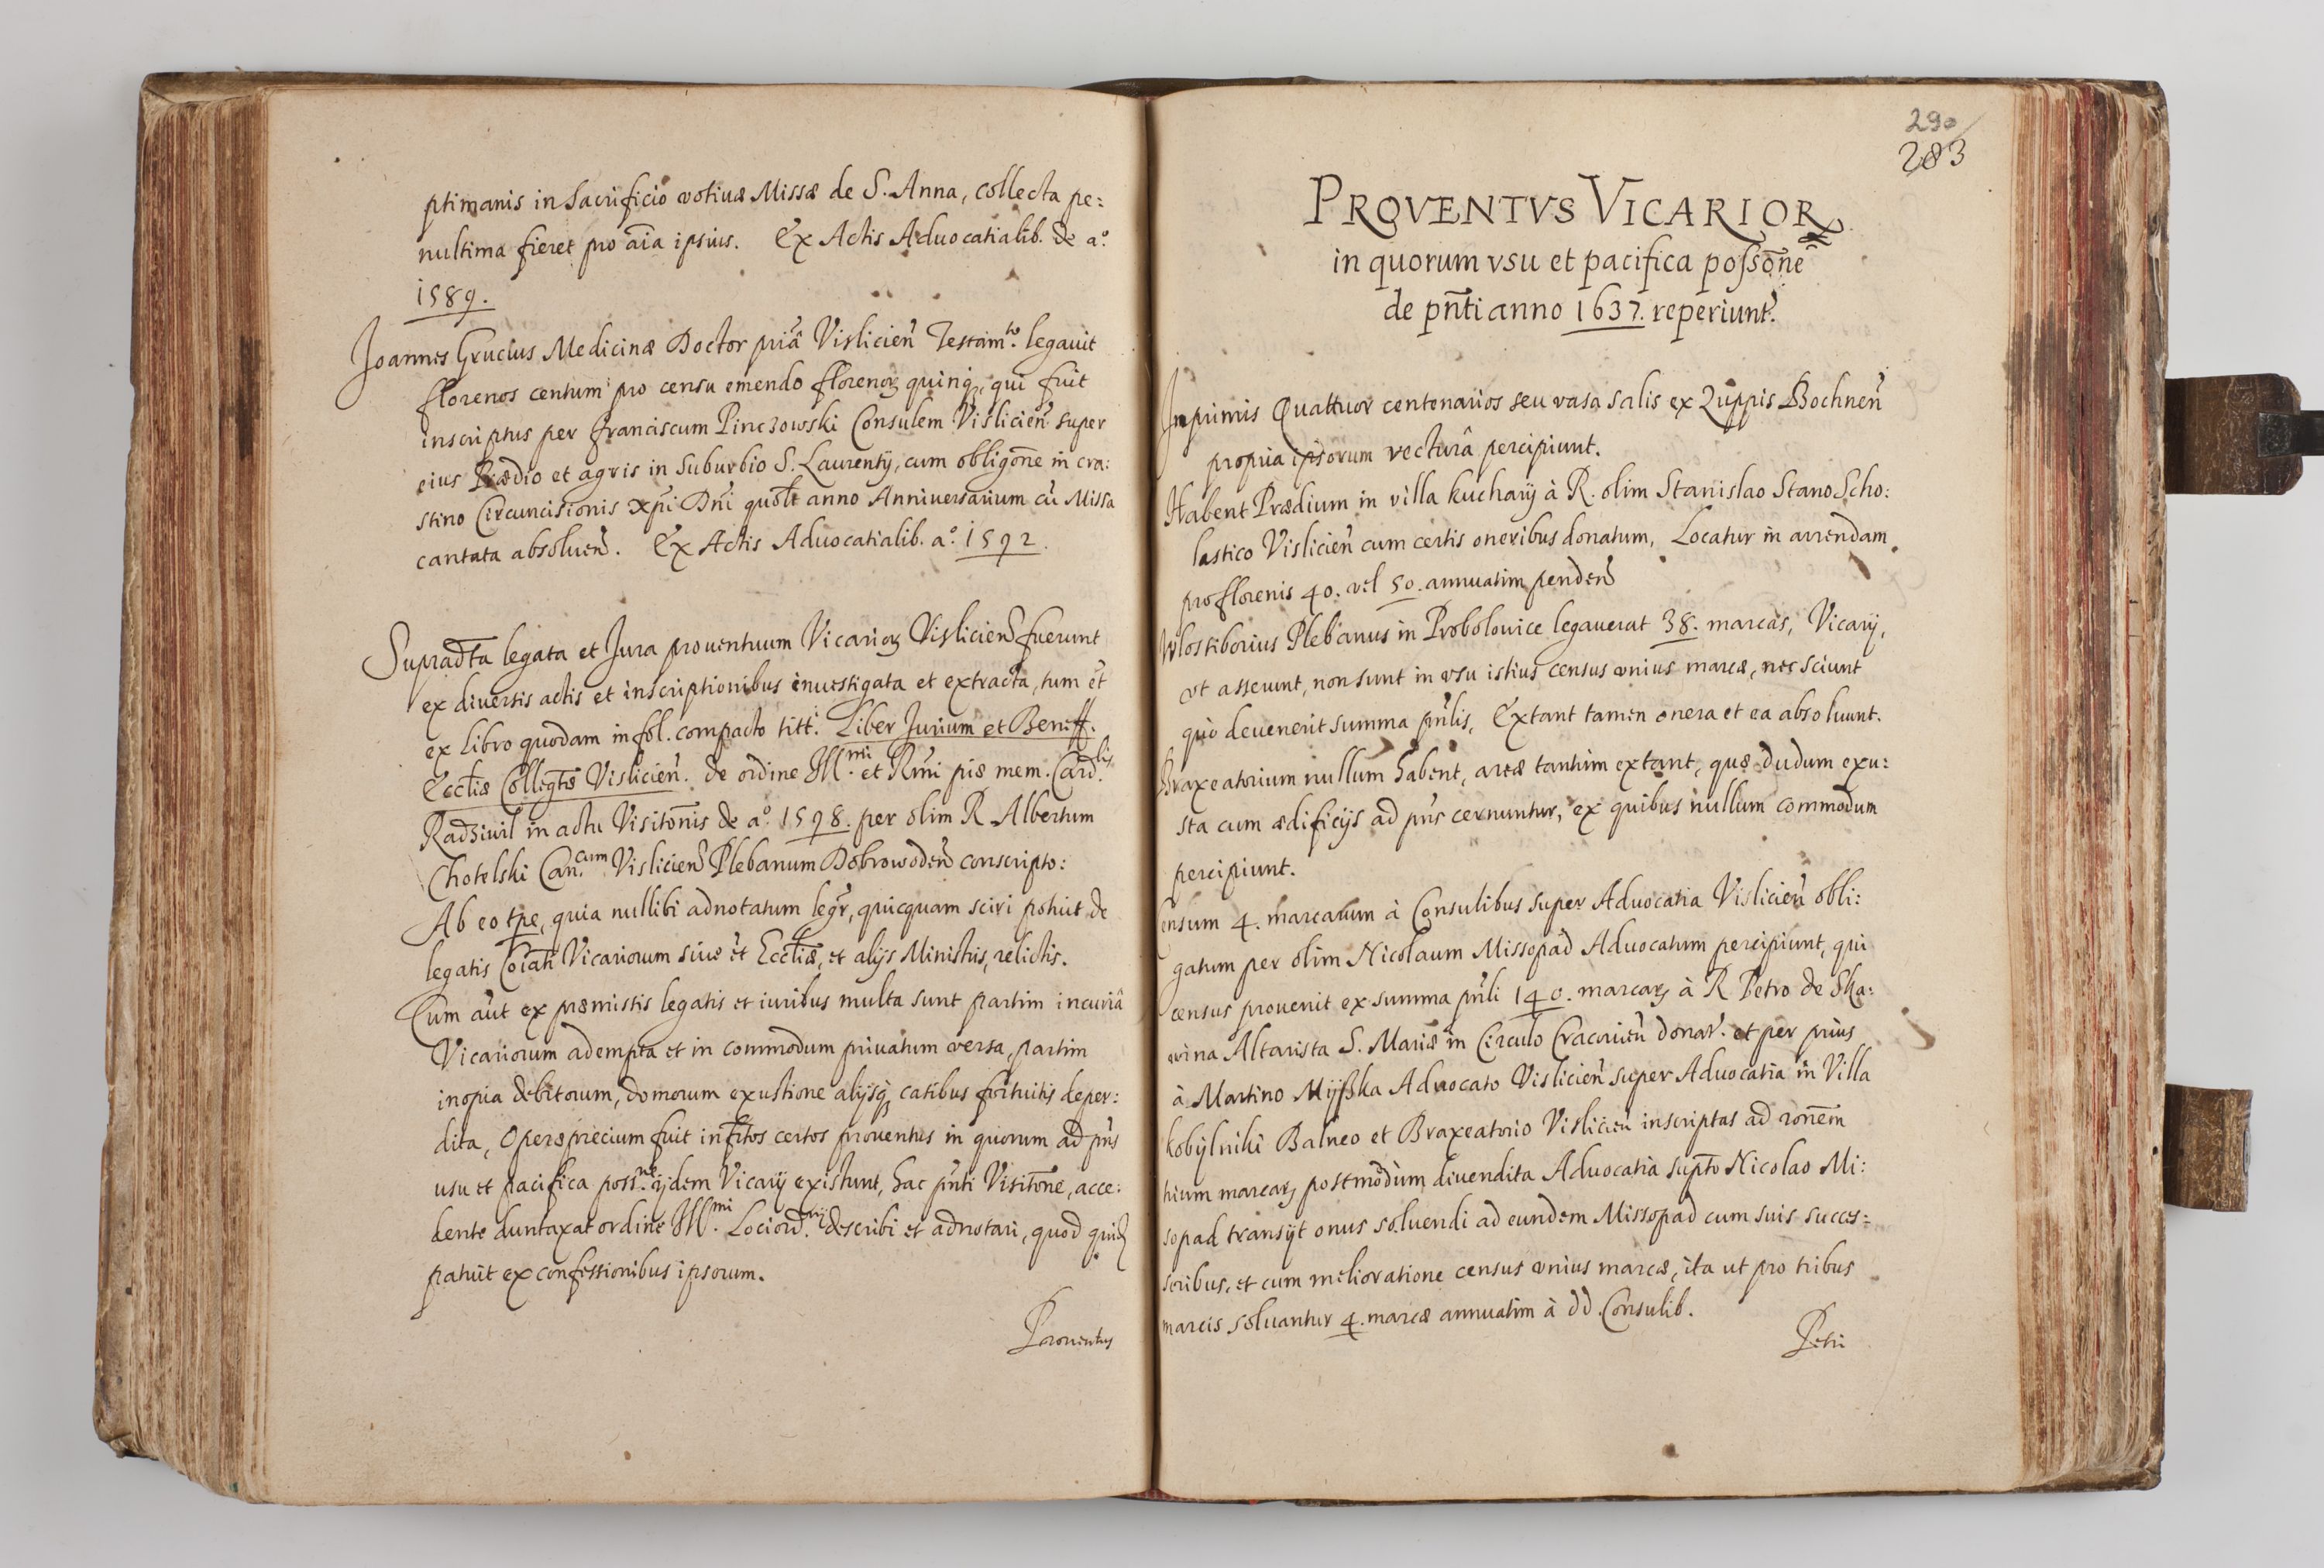 ptimanis in Sacrificio votiuæ Missæ de S. Anna, collecta pe:
nultima fieret pro aīa ipsius. Ex Actis Aduocatialib. de a.°
1589.
Joannes Grucius Medicinæ Doctor Vislicień Testam.to legauit
florenos centum pro censu emendo florenoꝝ quinqꝫ, qui fuit
inscriptus per Franciscum Pinczowski Consulem Vislicień super
eius Prædio et agris in Suburbio S. Laurentÿ, cum obligōne in cra:
stino Circuncisionis xp̄i Dn̄i quolt anno Anniuersarium cū Missa
cantata absoluen̄. Ex Actis Aduocatialib. a.° 1592.
Supradc̄ta legata et Jura prouentuum Vicarioꝝ Vislicień fuerunt
ex diuersis actis et inscriptionibus inuestigata et extracta, tum et̄
ex Libro quodam in fol. compacto titt. Liber Jurium et Beneff.
Eccliæ Collegtæ Vislicień. de ordine Ill.mi et Rm̄i piæ mem. Card.lis
Radziuil in actu Visitōnis de a.° 1598. per olim R. Albertum
Chotelski Can.cum Vislicień Plebanum Dobrowodeń conscripto:
Ab eo tp̄e, quia nullibi adnotatum legr̄, quicquam sciri potuit de
legatis Coīati Vicariorum siue et̄ Eccliæ, et alÿs Ministris, relictis.
Cum aūt ex præmissis legatis et iuribus multa sunt partim incuriâ
Vicariorum adempta et in commodum priuatum versa, partim
inopia debitorum, domorum exustione alÿsqꝫ casibus fortuitis deper:
dita, Operæprecium fuit infr̄tos certos prouentus in quorum ad pn̄s
usu et pacifica poss.ne ÿdem Vicarÿ existunt, hac pn̄ti Visitōne, acce:
dente duntaxat ordine Ill.mi Lociord.rÿ describi et adnotari, quod quidꝫ
patuit ex confessionibus ipsorum.
Prouentus
290
283
PROVENTVS VICARIORꝝ
in quorum vsu et pacifica possōne
de pn̄ti anno 1637. reperiunt̃.
Inprimis Quattuor centenarios seu vasa salis ex Zuppis Bochneń
propria ipsorum vecturâ percipiunt.
Habent Prædium in villa Kucharÿ à R. olim Stanislao Stano Scho:
lastico Vislicień cum certis oneribus donatum, Locatur in arrendam
pro florenis 40. vel 50. annuatim penden̄
Wlostiborius Plebanus in Probolowice legauerat 38. marcas, Vicarÿ,
vt asserunt, non sunt in vsu istius census vnius marcæ, nec sciunt
quò deuenerit summa pn̄lis, Extant tamen onera et ea absoluunt.
Braxeatorium nullum habent, areæ tantùm extant, quæ dudum exu:
sta cum ædificÿs ad pn̄s cernuntur, ex quibus nullum commodum
percipiunt.
Censum 4. marcarum à Consulibus super Aduocatia Vislicień obli:
gatum per olim Nicolaum Missopad Aduocatum percipiunt, qui
census prouenit ex summa pn̄li 140. marcaꝝ à R. Petro de Ska:
wina Altarista S. Mariæ in Circulo Cracouień donat̃. et per prius
à Martino Mÿßka Aduocato Vislicień super Aduocatia in Villa
Kobÿlniki Balneo et Braxeatorio Vislicień inscriptas ad ronem
trium marcaꝝ postmodum diuendita Aduocatia supto Nicolao Mi:
sopad transÿt onus soluendi ad eundem Missopad cum suis succes:
soribus, et cum melioratione census vnius marcæ, ita ut pro tribus
marcis soluantur 4. marcæ annuatim à dd. Consulib.
Petri